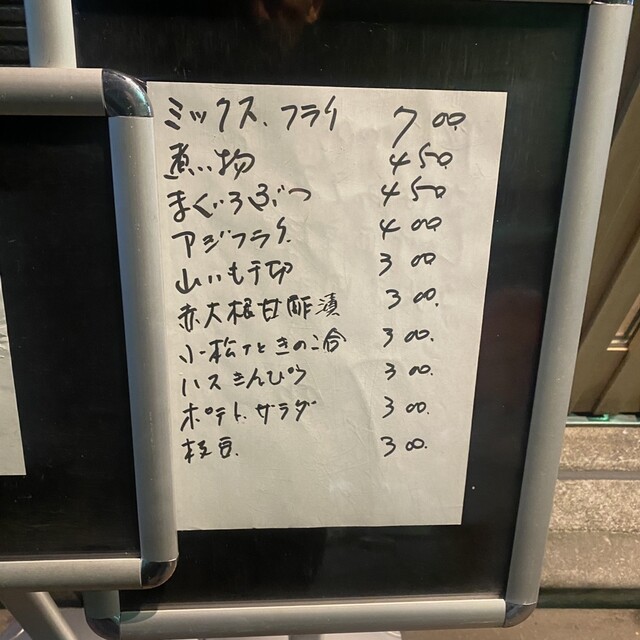 ミックス.フライ 700
煮い物 450
まぐろぶつ 450
アジフライ 400
山いも千切 300
赤大根甘酢漬 300.
小松ナときのこ合 300.
ハスきんぴら 300.
ポテト.サラダ 300.
枝豆. 300.